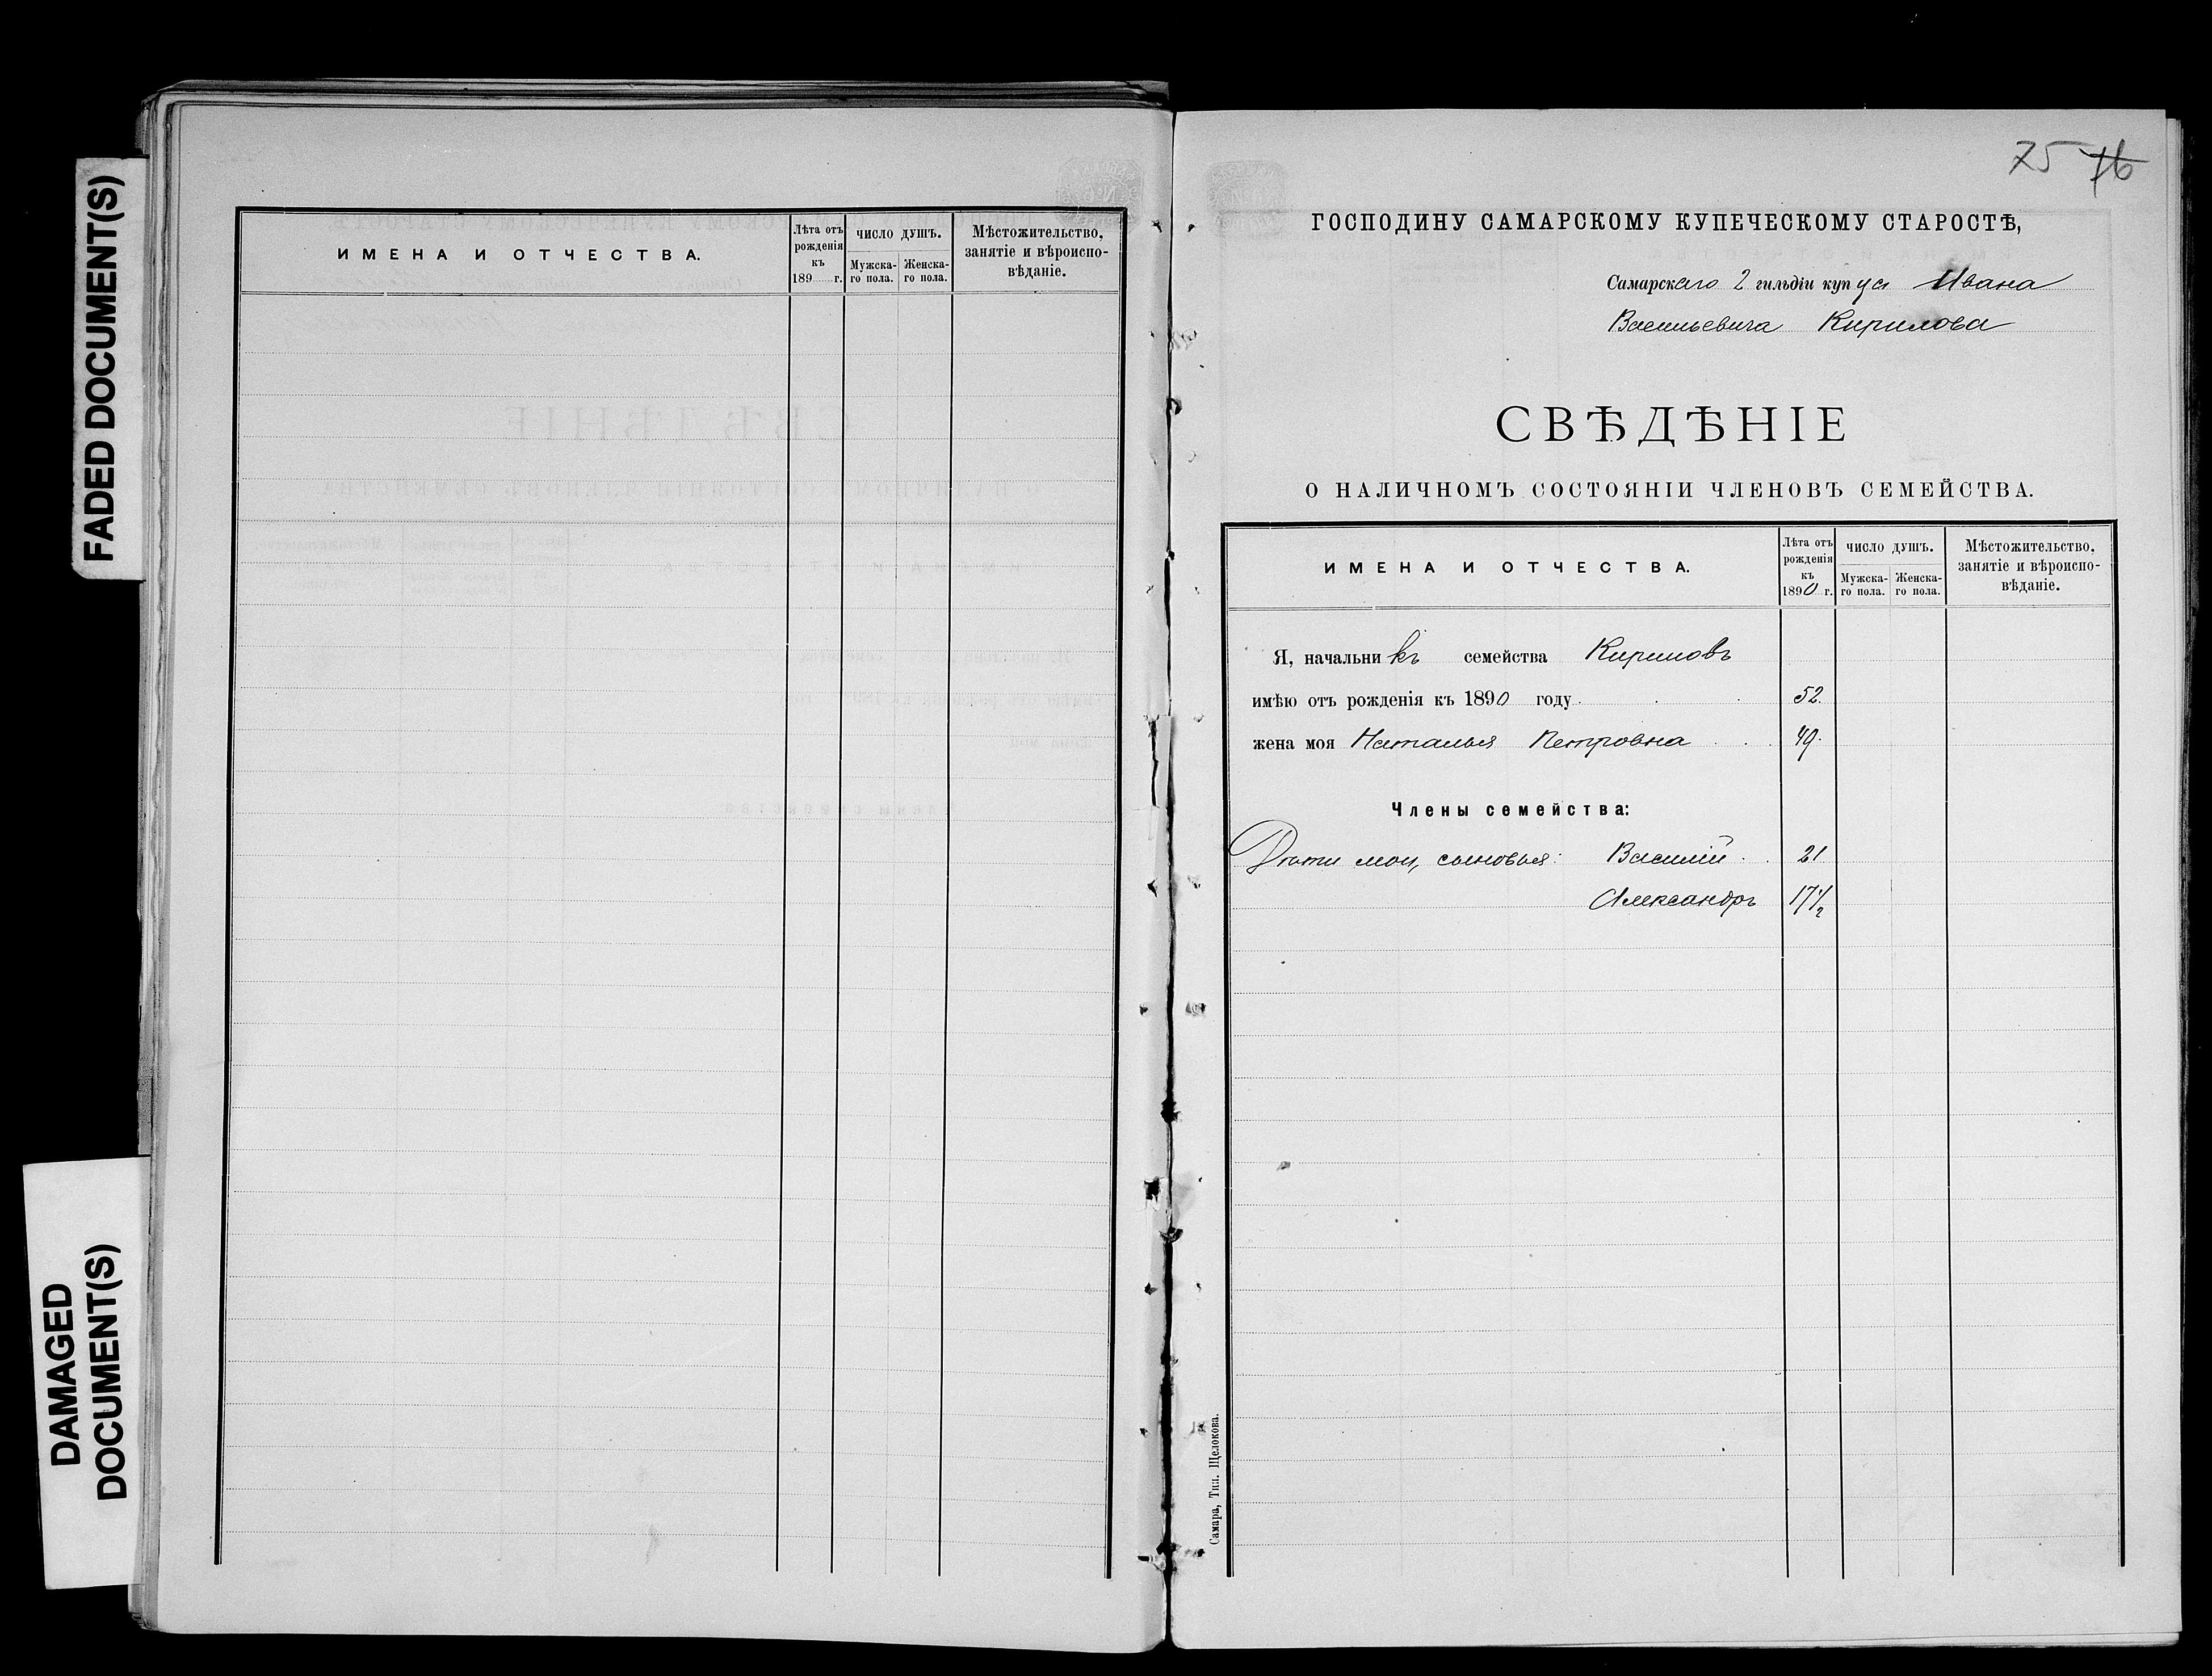 FADED DOCUMENT(S)
DAMAGED
DOCUMENT(S)
ИМЕНА И ОТЧЕСТВА.
Лѣта отъ рожденія къ 189 г.
ЧИСЛО ДУШЪ.
Мужска-го пола.
Женска-го пола.
Мѣстожительство,
занятіе и вѣроиспо-
вѣданіе.
75 76
ГОСПОДИНУ САМАРСКОМУ КУПЕЧЕСКОМУ СТАРОСТѢ,
Самарскаго 2 гильдіи купца Ивана
Васильевича Кирилова
СВѢДѢНІЕ
О НАЛИЧНОМЪ СОСТОЯНІИ ЧЛЕНОВЪ СЕМЕЙСТВА.
ИМЕНА И ОТЧЕСТВА.
Лѣта отъ рожденія къ 1890 г.
ЧИСЛО ДУШЪ.
Мужска-го пола.
Женска-го пола.
Мѣстожительство,
занятіе и вѣроиспо-
вѣданіе.
Я, начальникъ семейства Кириловъ
имѣю отъ рожденія къ 1890 году 52.
жена моя Наталья Петровна 49.
Члены семейства:
Дѣти мои, сыновья: Василій 21
Александръ 17 1/2
Самара, Тип. Щелокова.